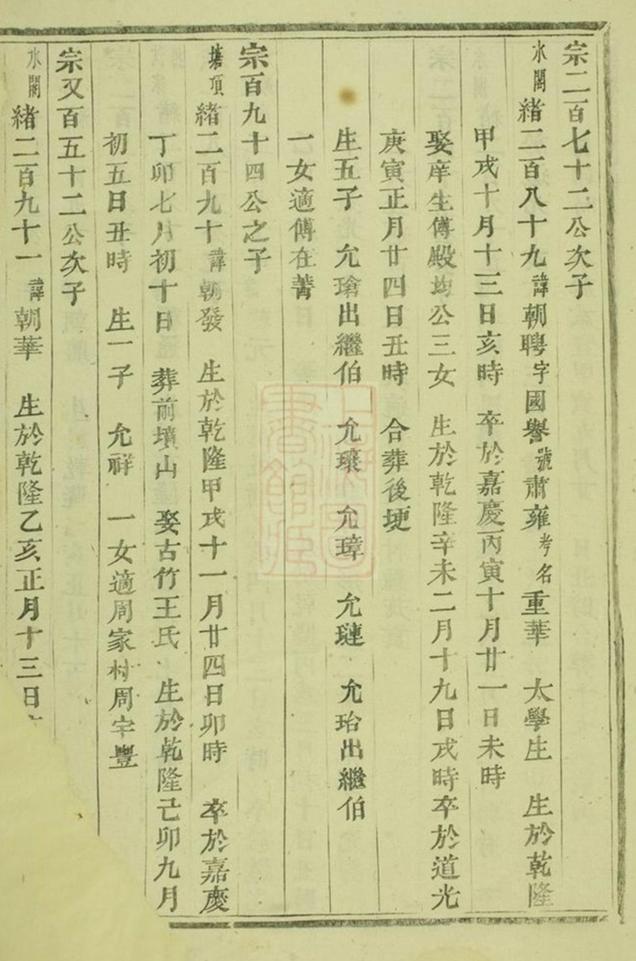 宗二百七十二公次子
水閣緒二百八十九諱朝聘字國譽號肅雍考名重華 太學生 生於乾隆
甲戌十月十三日亥時 卒於嘉慶丙寅十月廿一日未時
娶庠生傅殿均公三女 生於乾隆辛未二月十九日戌時卒於道光
庚寅正月廿四日丑時 合葬後埂
生五子 允瑲出繼伯 允瓌 允璋 允璉 允珆出繼伯
一女適傅在菁
宗百九十四公之子
塘頂緒二百九十諱朝發 生於乾隆甲戌十一月廿四日卯時 卒於嘉慶
丁卯七月初十日 葬前墳山 娶古竹王氏 生於乾隆己卯九月
初五日丑時 生一子 允祥 一女適周家村周宇豐
宗又百五十二公次子
水閣緒二百九十一諱朝華 生於乾隆乙亥正月十三日